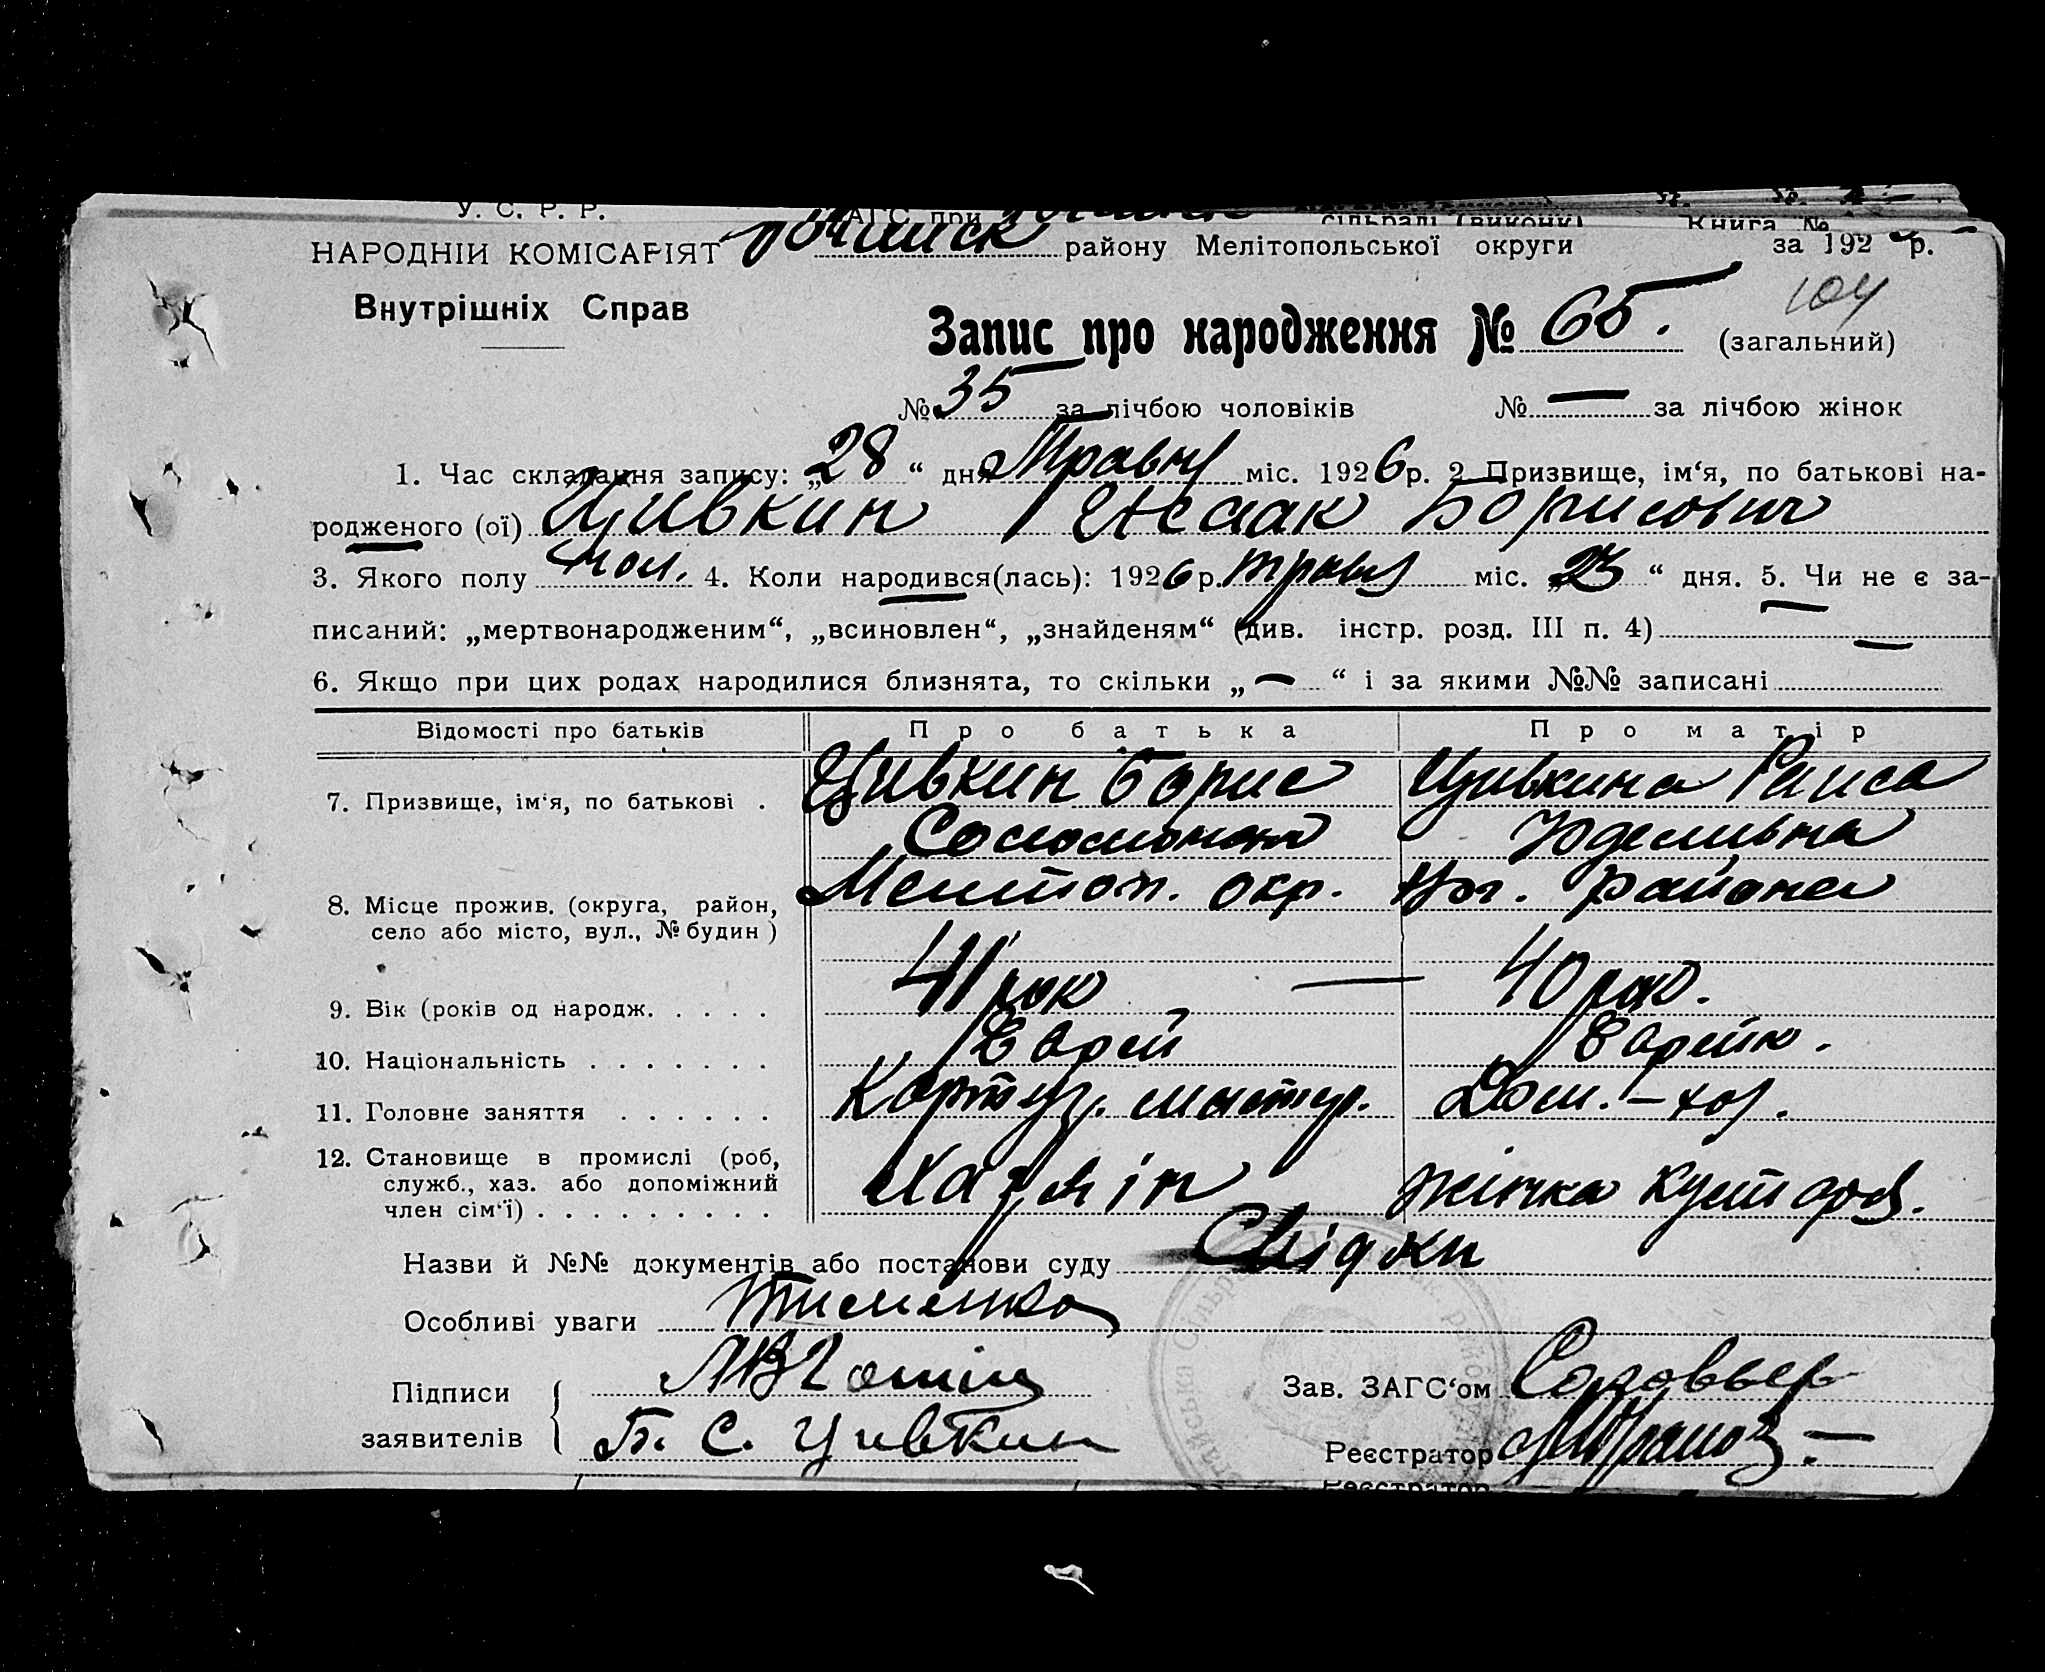 У. С. Р. Р.
ЗАГС при сільраді (виконк) Книга №
НАРОДНІЙ КОМІСАРІЯТ району Мелітопольської округи за 192 р.
Внутрішніх Справ
104
Запис про народження № 65. (загальний)
№ 35 за лічбою чоловіків № — за лічбою жінок
1. Час складання запису: „28“ дня Травня міс. 1926 р. 2 Призвище, ім‘я, по батькові на-
родженого (ої) Цивкин Исаак Борисович
3. Якого полу чол. 4. Коли народився(лась): 1926 р. травня міс. „23“ дня. 5. Чи не є за-
писаний: „мертвонародженим“, „всиновлен“, „знайденям“ (див. інстр. розд. III п. 4) —
6. Якщо при цих родах народилися близнята, то скільки „—“ і за якими №№ записані
Відомості про батьків Про батька Про матір
7. Призвище, ім‘я, по батькові . Цивкин Борис Цивкина Раиса
Соломонов Юделивна
8. Місце прожив. (округа, район, Мелітоп. окр. района
село або місто, вул., № будин )
9. Вік (років од народж. . . . . 41 рок — 40 рок.
10. Національність . . . . . . . Еврей Еврейк.
11. Головне заняття . . . . . . Картуз. мастер. Дом.-хоз.
12. Становище в промислі (роб,
служб., хаз. або допоміжний Хазяін жінка кустаря.
член сім‘ї) . . . . . . . . .
Назви й №№ документів або постанови суду Свідки
Особливі уваги
Підписи Зав. ЗАГС‘ом Соловьев
заявителів Б. С. Цивкин Реєстратор
Реєстратор